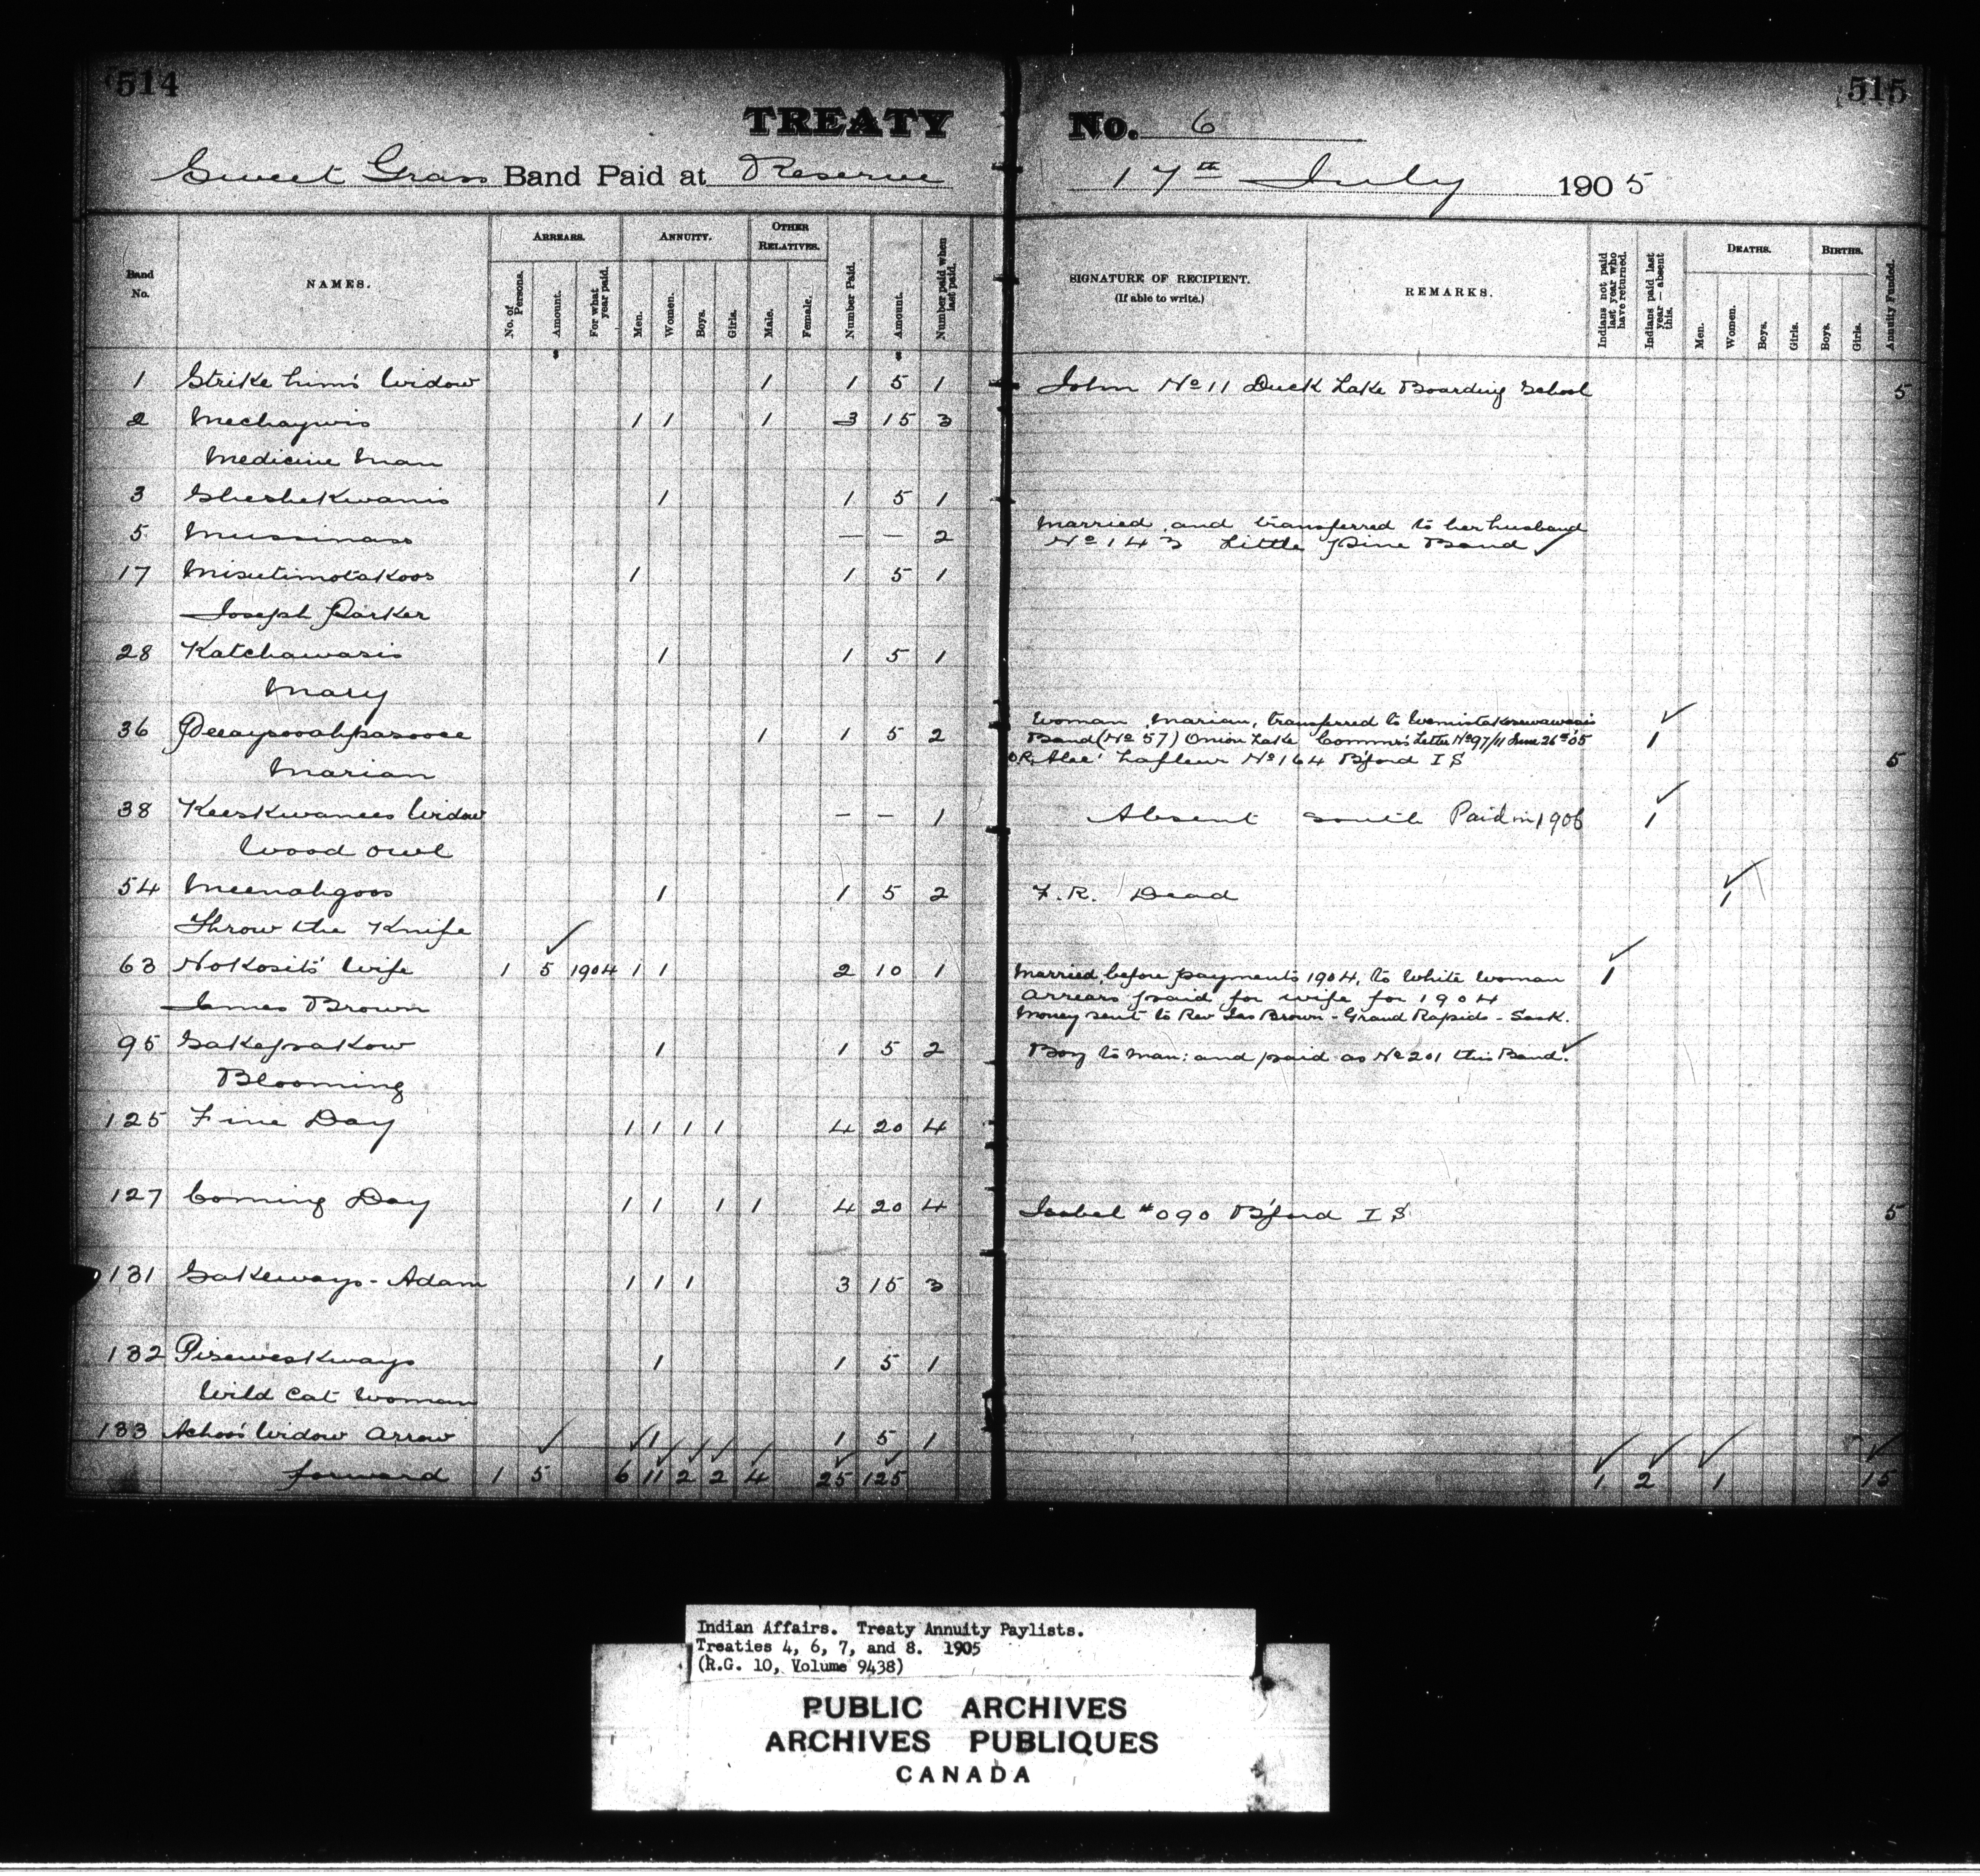 514
515
TREATY No. 6
Sweet Grass Band Paid at Reserve 17th July 1905
Band No.
NAMES.
ARREARS.
No. of Persons.
Amount.
For what year paid.
ANNUITY.
Men.
Women.
Boys.
Girls.
OTHER RELATIVES.
Male.
Female.
Number Paid.
Amount.
Number paid when last paid.
SIGNATURE OF RECIPIENT.
(If able to write.)
REMARKS.
Indians not paid last year who have returned.
Indians paid last year — absent this.
DEATHS.
Men.
Women.
Boys.
Girls.
BIRTHS.
Boys.
Girls.
Annuity Funded.
1 Strike him's Widow 1 1 5 1 John No 11 Duck Lake Boarding School 5
2 Mechaywis 1 1 1 3 15 3
Medicine Man
3 Sheshekwanis 1 1 5 1
5 Mussinass — — 2 Married and transferred to her husband
No 143 Little Pine Band ✓
17 Misutimotakoos 1 1 5 1
Joseph Parker
28 Katchawasis 1 1 5 1
Mary
36 1 1 5 2 Woman, Marian, transferred to
Band (No 57) Onion Lake Commrs Letter No 97/11 June 26th 05 1
Marian Lafleur No 164 B'ford I S 5
38 Keeskwanees Widow — — 1 Absent south Paid in 1906 1
Wood owl
54 Meenahgoos 1 1 5 2 F.R. Dead 1
Throw the Knife
63 Nokosits' Wife 1 5 1904 1 1 2 10 1 Married before payments 1904, to White woman 1
James Brown Arrears paid for wife for 1904
Money sent to Rev Jas Brown - Grand Rapids - Sask.
95 Sakepakow 1 1 5 2 Boy to man: and paid as No 201 this Band. ✓
Blooming
125 Fine Day 1 1 1 1 4 20 4
127 Coming Day 1 1 1 1 4 20 4 Isabel #090 B'ford I S 5
131 Sakeways - Adam 1 1 1 3 15 3
132 Piseweskways 1 1 5 1
Wild Cat Woman
133 Achoo's Widow Arrow 1 1 5 1
forward 1 5 6 11 2 2 4 25 125 1 2 1 15
Indian Affairs. Treaty Annuity Paylists.
Treaties 4, 6, 7, and 8. 1905
(R.G. 10, Volume 9438)
PUBLIC ARCHIVES
ARCHIVES PUBLIQUES
CANADA